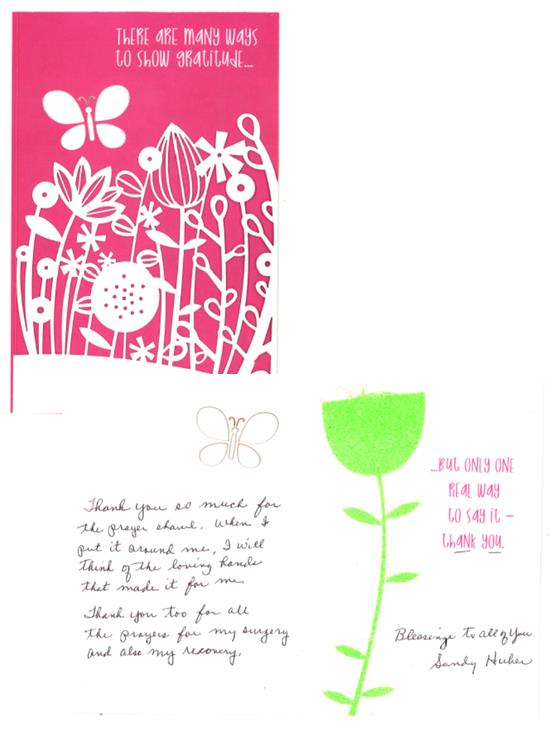 THERE ARE MANY WAYS
TO SHOW GRATITUDE...
...BUT ONLY ONE
REAL WAY
TO SAY IT –
THANK YOU.
Thank you so much for
the prayer shawl. When I
put it around me, I will
think of the loving hands
that made it for me.
Thank you too for all
the prayers for my surgery
and also my recovery.
Blessings to all of you
Sandy Huber